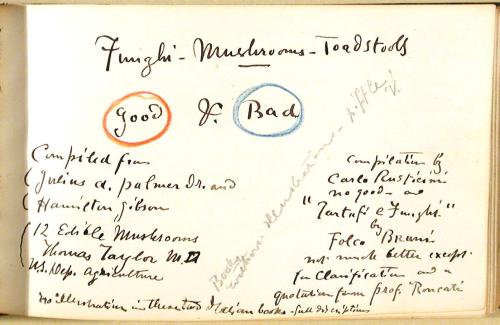 Funghi - Mushrooms - Toadstools
Good & Bad
Compiled from
(Julius A. Palmer Jr. and
(Hamilton Gibson
(12 Edible Mushrooms
Thomas Taylor M.D
U.S. Dep. Agriculture
Compilation by
Carlo Rusticini
no good - and
"Tartufi e Funghi"
by
Folco Bruni
not much better except
for Clarification and a
quotation from Prof. Roncati
no illustration in these two Italian books - full descriptions
Books
without illustration -